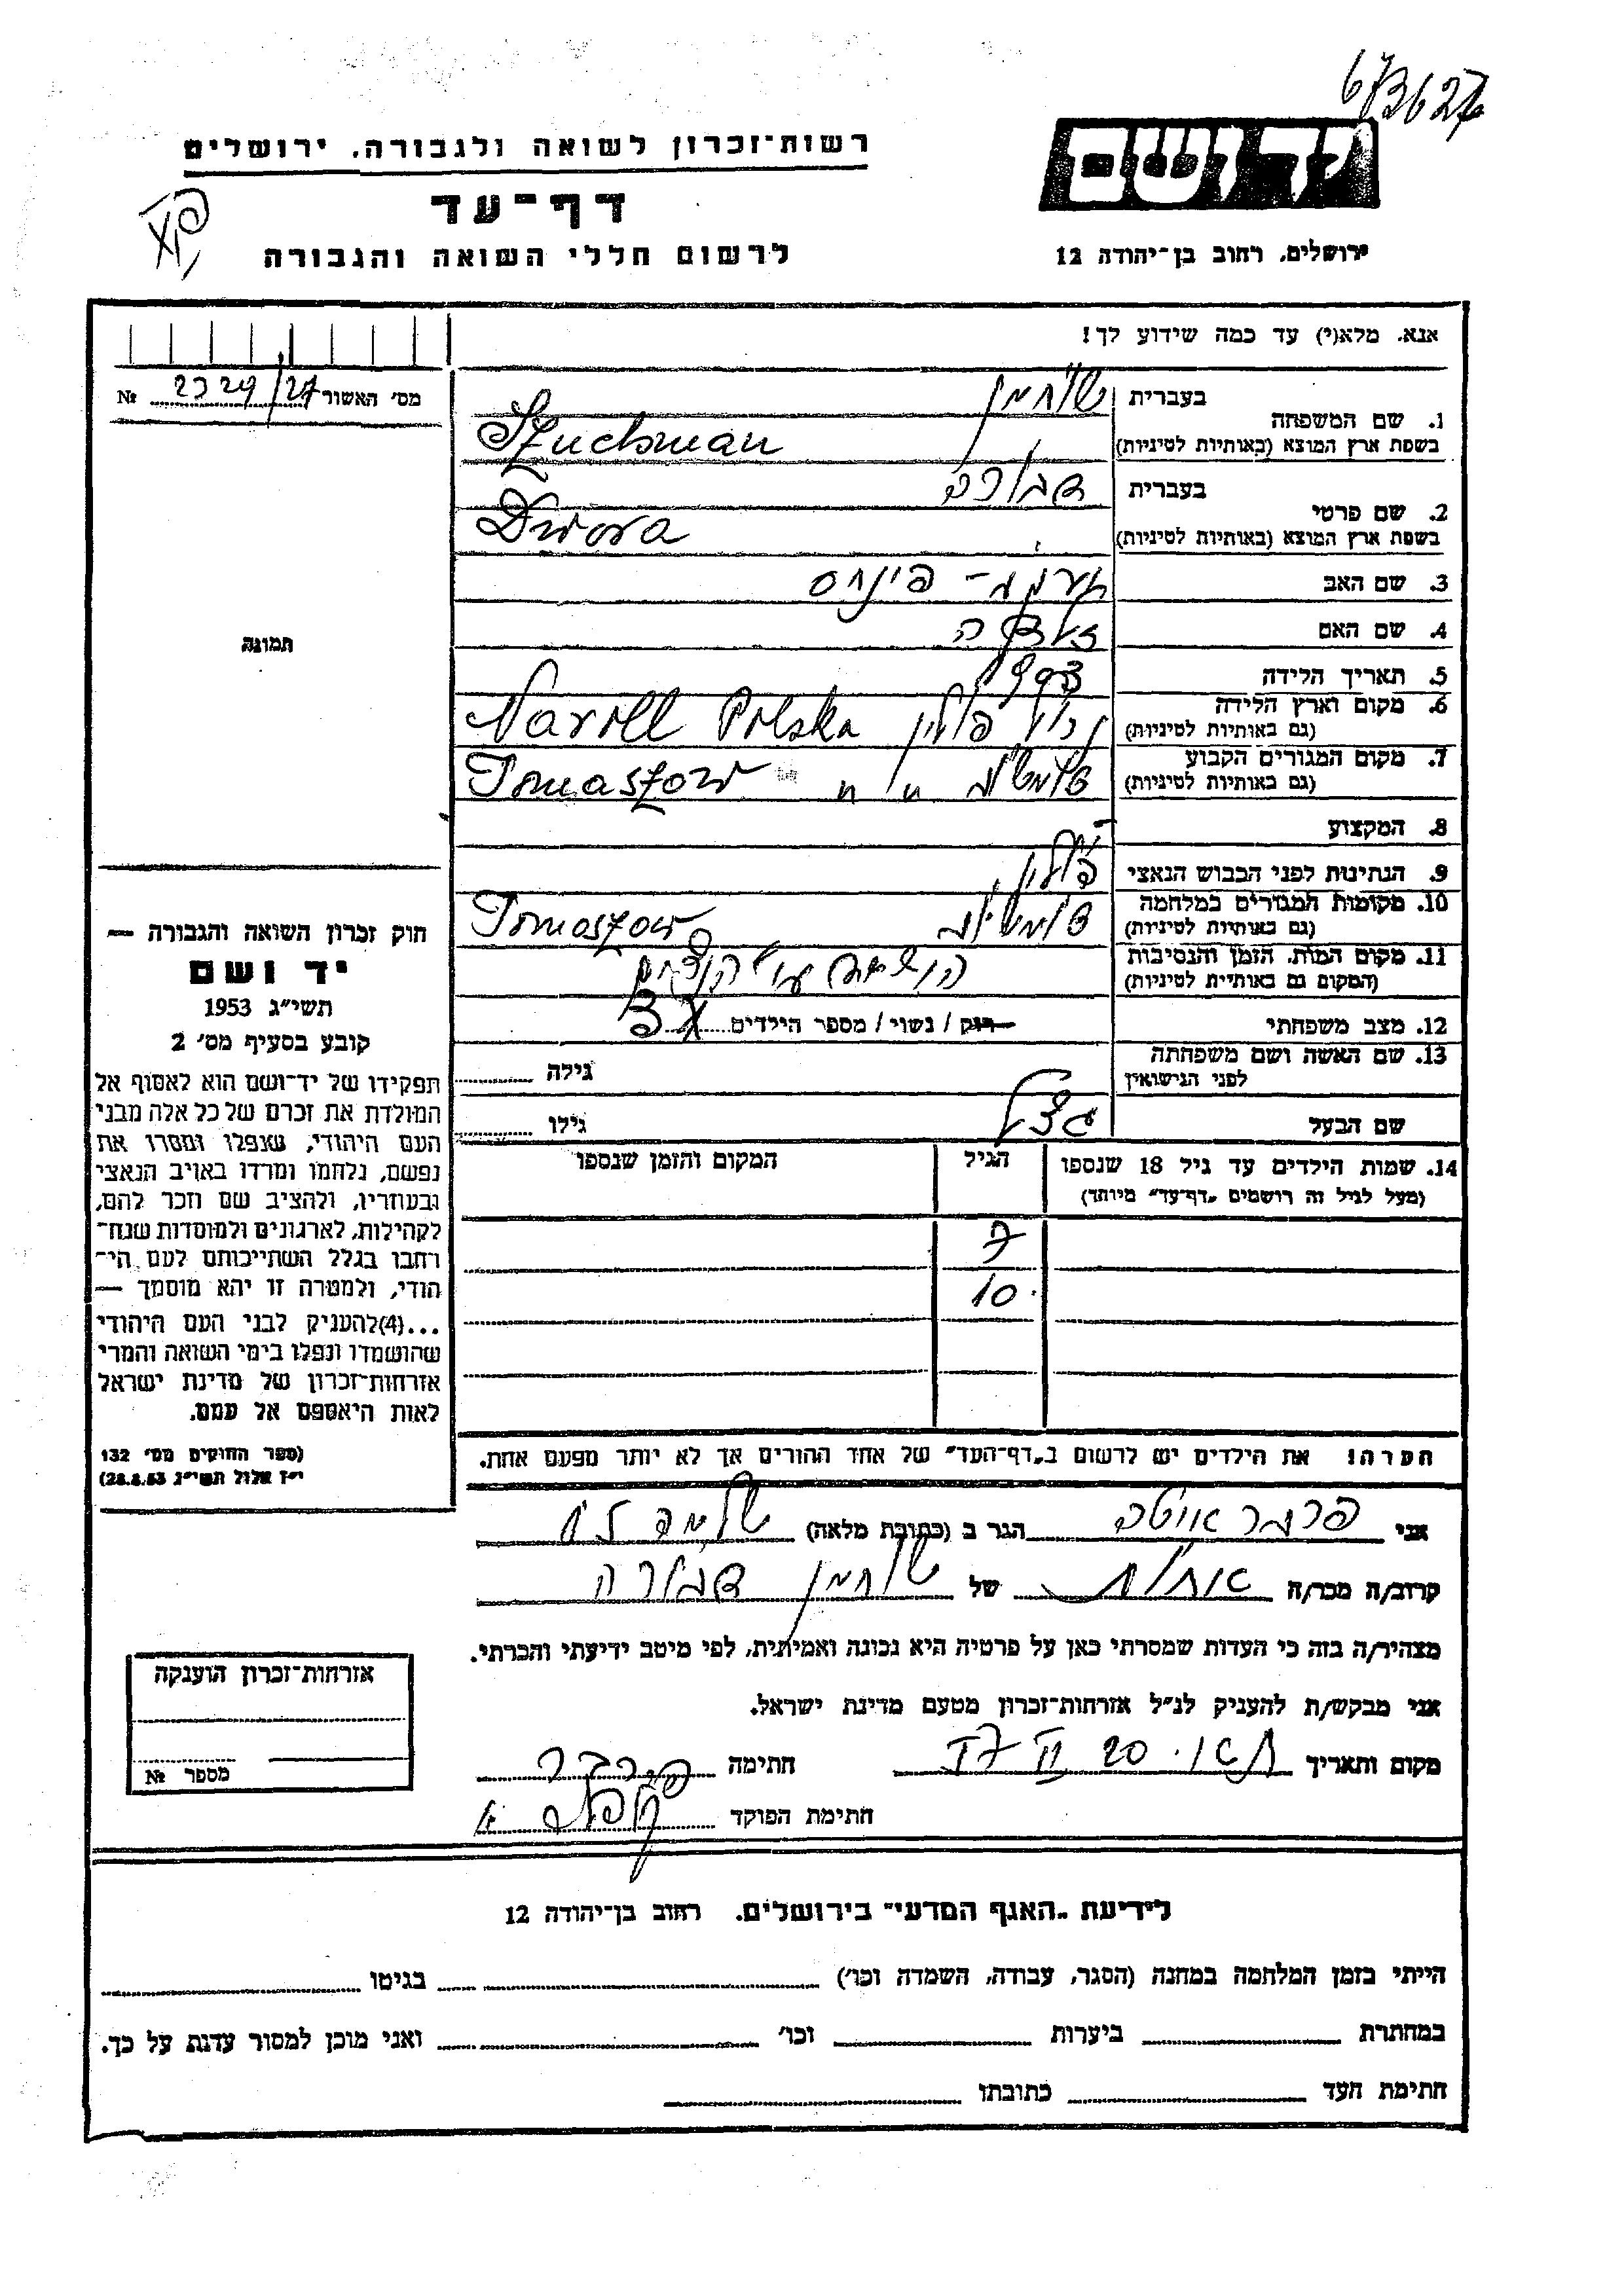 673627
יד ושם
רשות־זכרון לשואה ולגבורה, ירושלים
דף־עד
לרשום חללי השואה והגבורה
ירושלים, רחוב בן־יהודה 12
אנא, מלא(י) עד כמה שידוע לך!
מס' האשור 2329/27 №
תמונה
1. שם המשפחה
בעברית שוחמן
בשפת ארץ המוצא (באותיות לטיניות) Szuchman
2. שם פרטי
בעברית דבורה
בשפת ארץ המוצא (באותיות לטיניות) Dwora
3. שם האב פינחס
4. שם האם
5. תאריך הלידה
6. מקום וארץ הלידה
(גם באותיות לטיניות) פולין Naroll Polska
7. מקום המגורים הקבוע
(גם באותיות לטיניות) Tomaszow
8. המקצוע
9. הנתינות לפני הכבוש הנאצי פולין
10. מקומות המגורים במלחמה
(גם באותיות לטיניות) Tomaszow
11. מקום המות, הזמן והנסיבות
(המקום גם באותיית לטיניות)
12. מצב משפחתי רווק / נשוי / מספר הילדים
13. שם האשה ושם משפחתה
לפני הנישואין גילה
שם הבעל גצל גילו
14. שמות הילדים עד גיל 18 שנספו הגיל המקום והזמן שנספו
(מעל לגיל זה רושמים „דף־עד" מיוחד)
7
10
חוק זכרון השואה והגבורה —
יד ושם
תשי"ג 1953
קובע בסעיף מס' 2
תפקידו של יד־ושם הוא לאסוף אל
המולדת את זכרם של כל אלה מבני
העם היהודי, שנפלו ומסרו את
נפשם, נלחמו ומרדו באויב הנאצי
ובעוזריו, ולהציב שם וזכר להם,
לקהילות, לארגונים ולמוסדות שנח־
רחבו בגלל השתייכותם לעם הי־
הודי, ולמטרה זו יהא מוסמך —
...(4)להעניק לבני העם היהודי
שהושמדו ונפלו בימי השואה והמרי
אזרחות־זכרון של מדינת ישראל
לאות היאספם אל עמם.
(ספר החוקים מס' 132
י"ז אלול תשי"ג 28.8.53)
הערה! את הילדים יש לרשום ב„דף־העד" של אחד ההורים אך לא יותר מפעם אחת.
אני פרבר איטה הגר ב (כתובת מלאה)
קרוב/ה מכר/ה אחות של שוחמן דבורה
מצהיר/ה בזה כי העדות שמסרתי כאן על פרטיה היא נכונה ואמיתית, לפי מיטב ידיעתי והכרתי.
אני מבקש/ת להעניק לנ"ל אזרחות־זכרון מטעם מדינת ישראל.
מקום ותאריך 20 חתימה פרבר
חתימת הפוקד
אזרחות־זכרון הוענקה
מספר №
לידיעת „האגף המדעי" בירושלים, רחוב בן־יהודה 12
הייתי בזמן המלחמה במחנה (הסגר, עבודה, השמדה וכו') בגיטו
במחתרת ביערות וכו' ואני מוכן למסור עדות על כך.
חתימת העד כתובתו